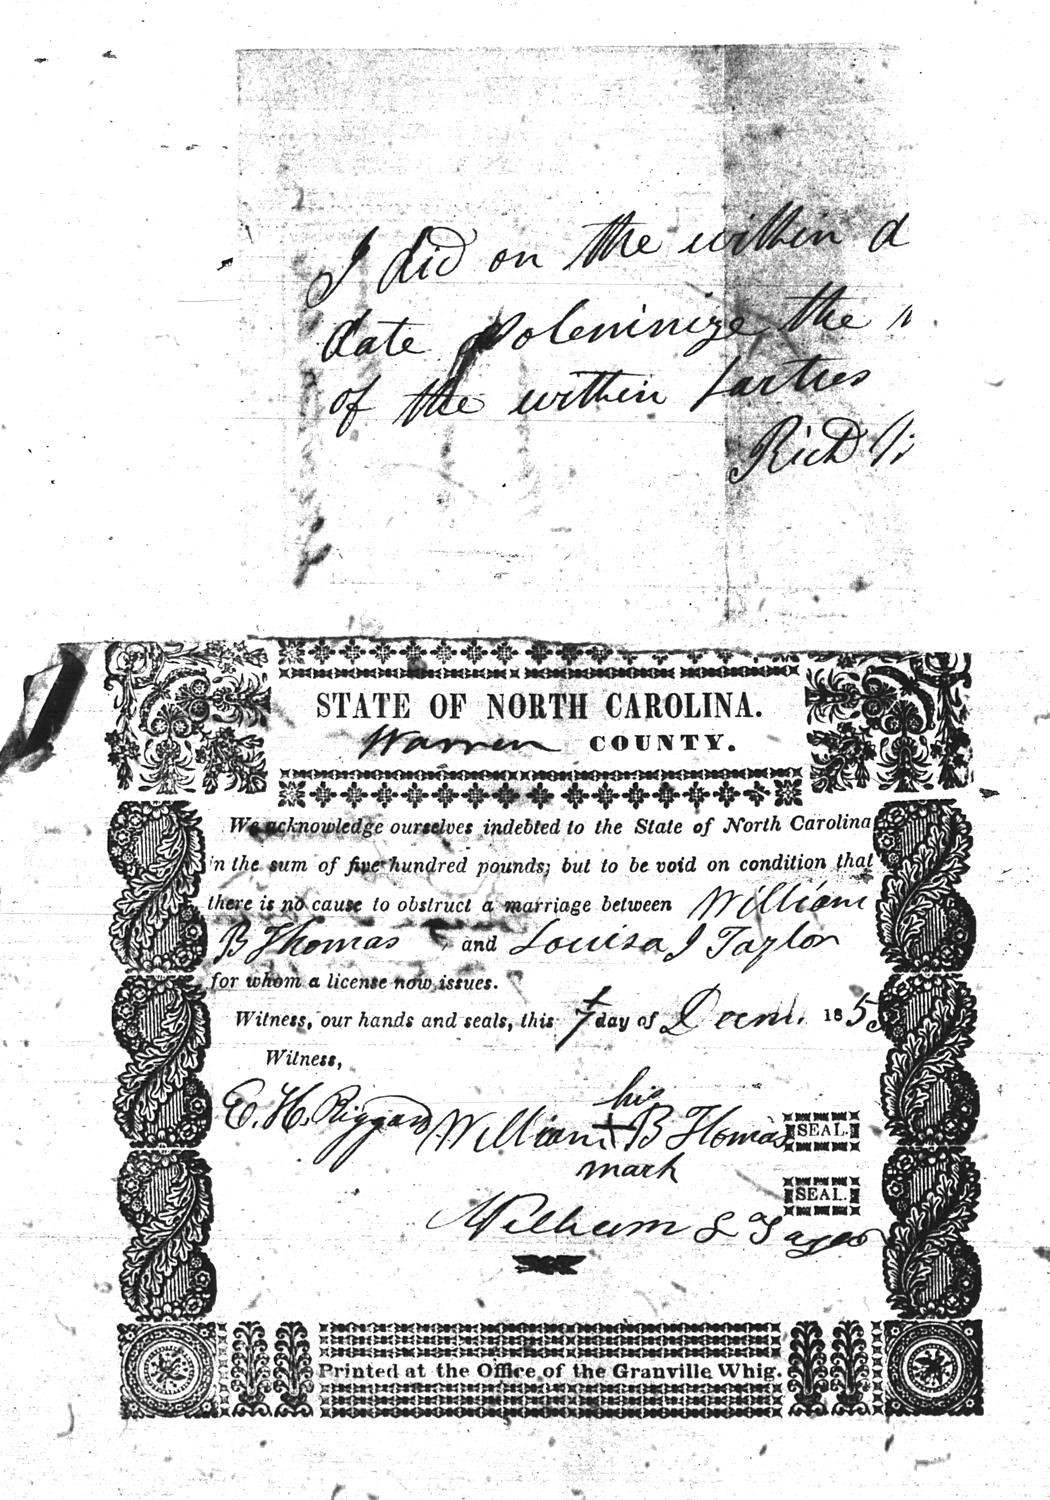 I did on the within d
date Soleminize, the
of the within parties
Rich
STATE OF NORTH CAROLINA.
Warren COUNTY.
We acknowledge ourselves indebted to the State of North Carolina
in the sum of five hundred pounds; but to be void on condition that
there is no cause to obstruct a marriage between William
B Thomas , and Louisa J Taylor
for whom a license now issues.
Witness, our hands and seals, this 7 day of Decm. 185
Witness,
his
E. H. Riggan William X B Thomas SEAL.
mark
SEAL.
William L Taylor
Printed at the Office of the Granville Whig.